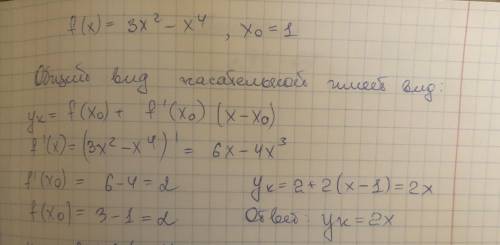 f(x) = 3x² - x⁴ , x₀ = 1
Общий вид касательной имеет вид:
yк = f(x₀) + f'(x₀) (x - x₀)
f'(x) = (3x² - x⁴)' = 6x - 4x³
f'(x₀) = 6 - 4 = 2
yк = 2 + 2(x - 1) = 2x
f(x₀) = 3 - 1 = 2
Ответ: yк = 2x